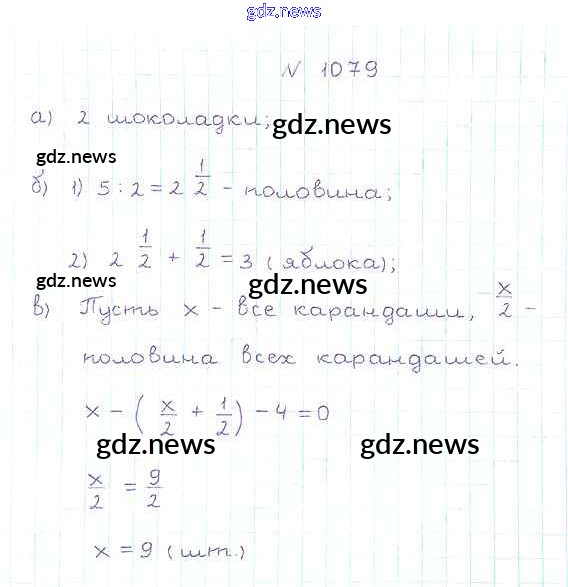 gdz.news
№ 1079
а) 2 шоколадки;
gdz.news
gdz.news
б) 1) 5 : 2 = 2 1/2 - половина;
2) 2 1/2 + 1/2 = 3 (яблока);
gdz.news
gdz.news
в) Пусть x - все карандаши, x/2 -
половина всех карандашей.
x - (x/2 + 1/2) - 4 = 0
gdz.news
gdz.news
x/2 = 9/2
x = 9 (шт.)